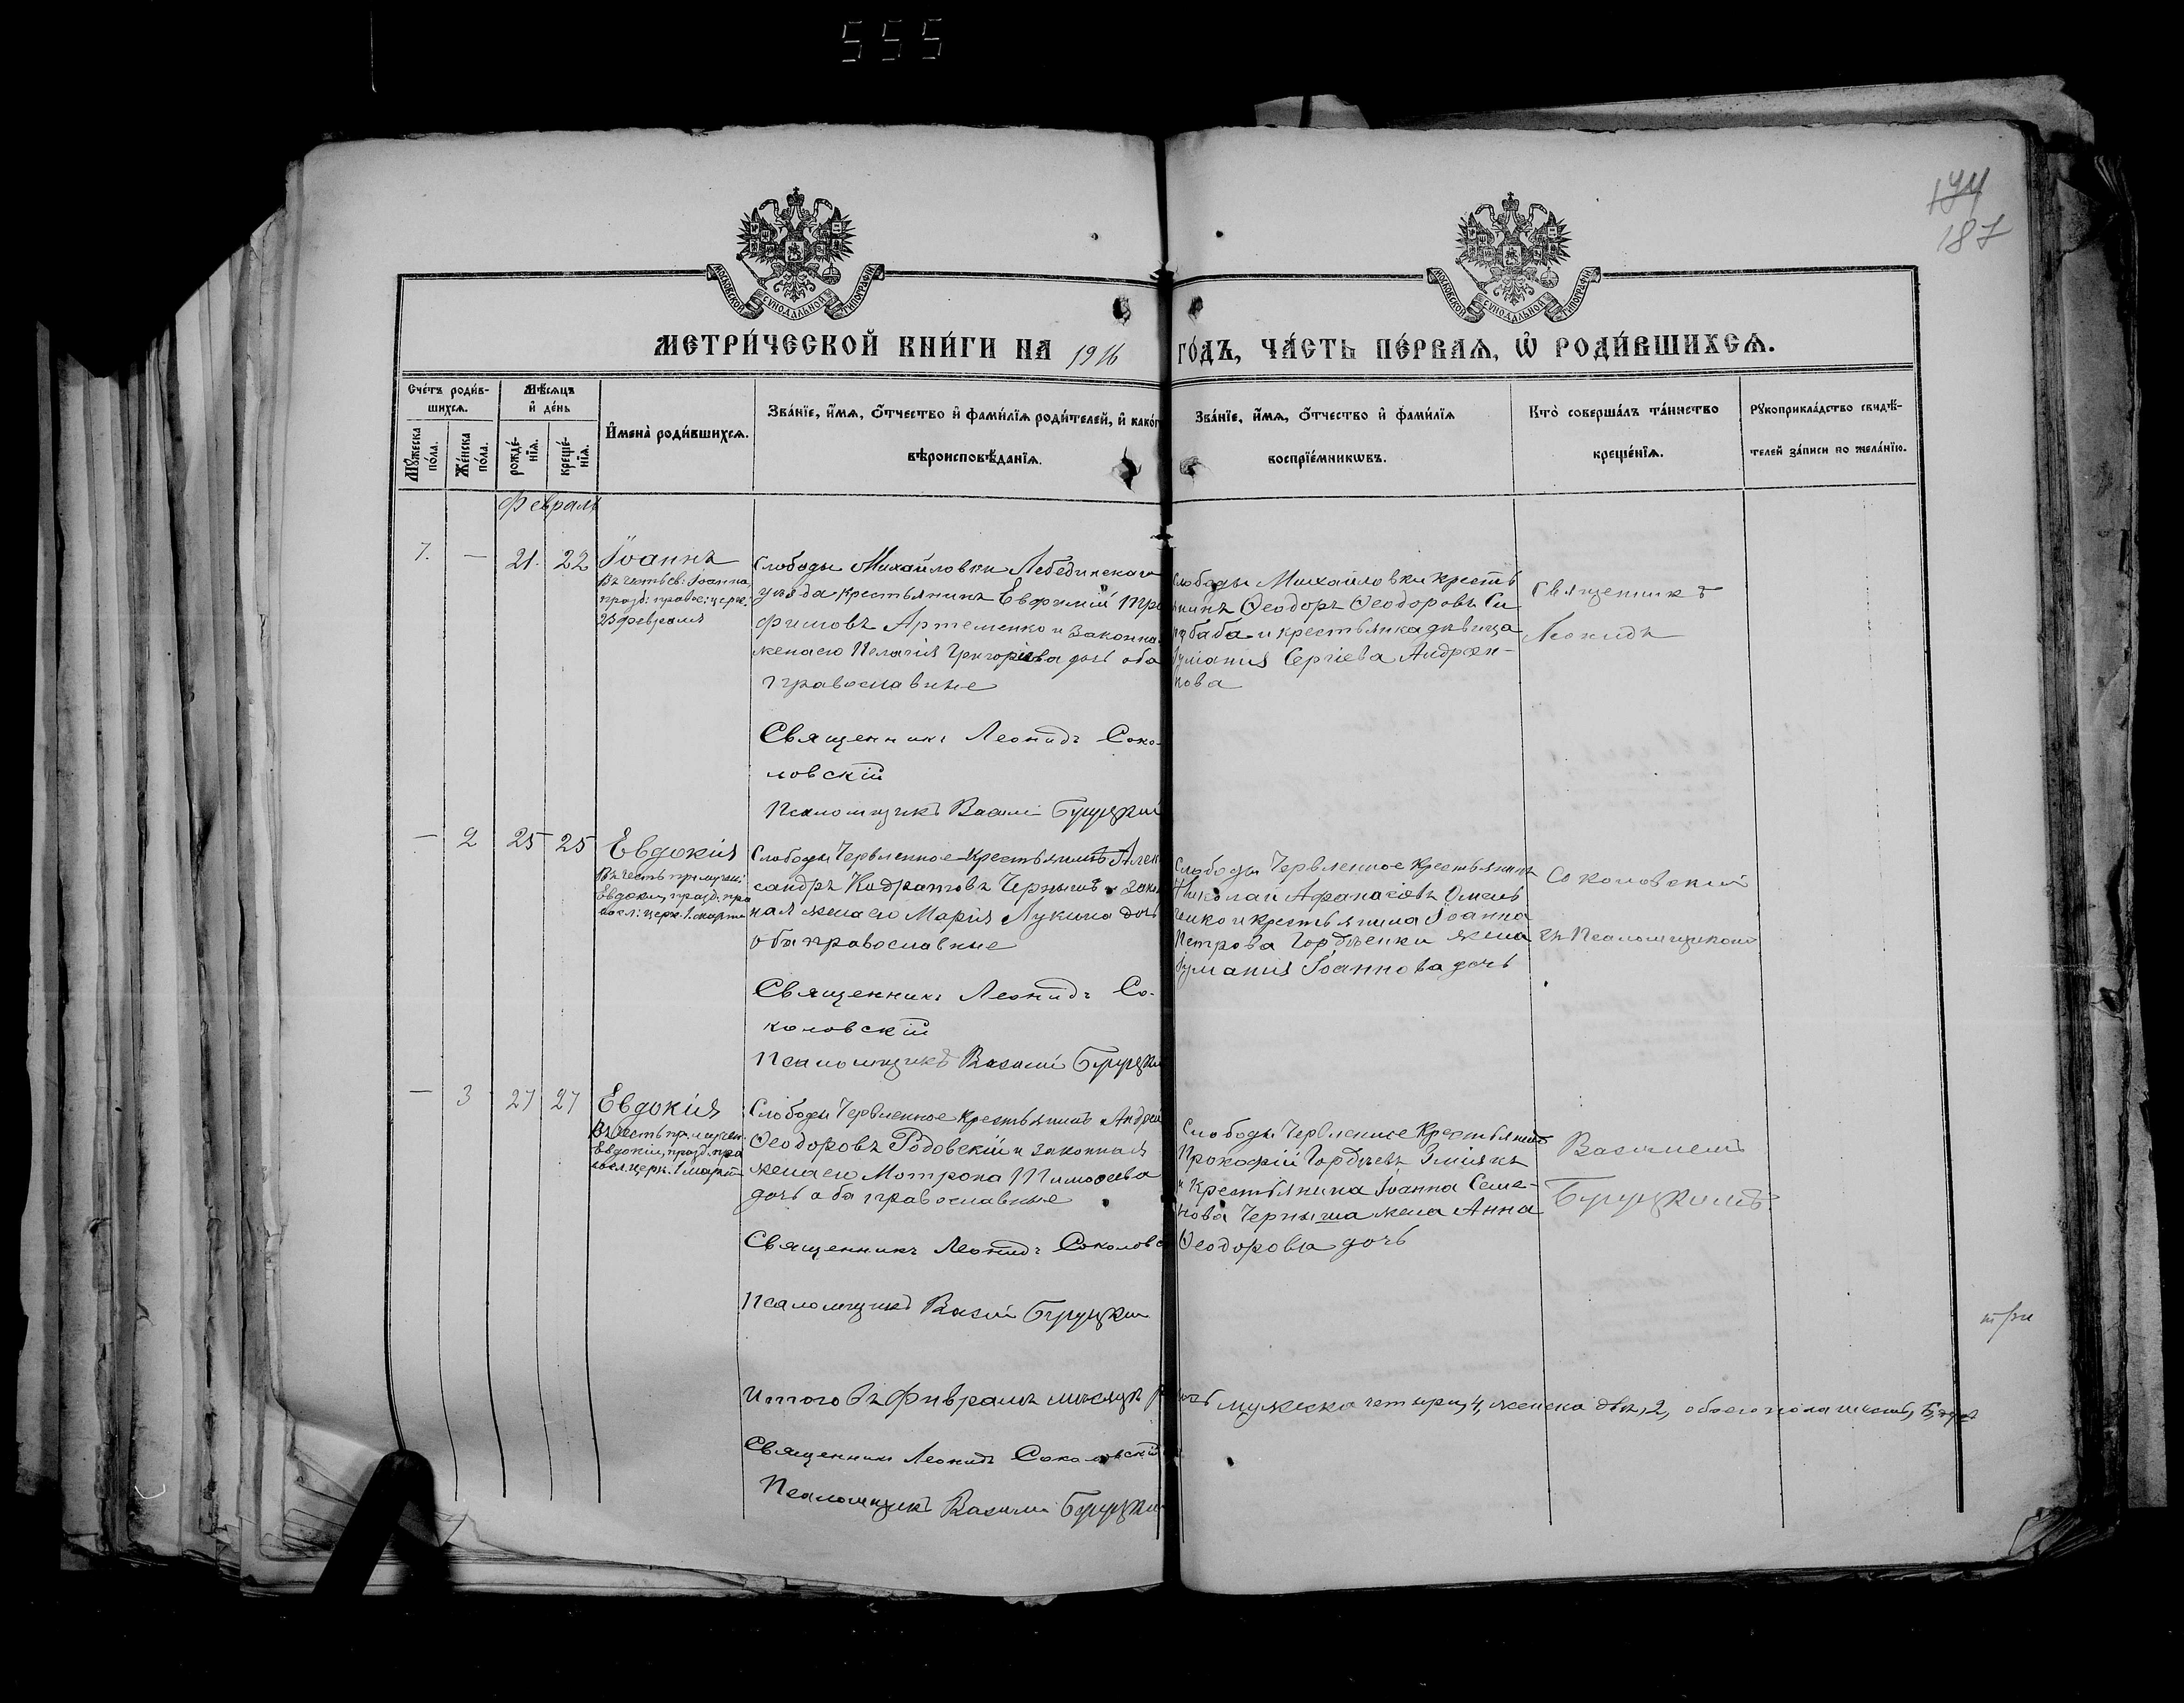 555
194
187
МОСКОВСКОЙ СѴНОДАЛЬНОЙ ТИПОГРАФІИ
МОСКОВСКОЙ СѴНОДАЛЬНОЙ ТИПОГРАФІИ
МЕТРИ́ЧЕСКОЙ КНИ́ГИ НА 1916 ГО́ДЪ, ЧА́СТЬ ПЕ́РВАѦ, Ѡ҆ РОДИ́ВШИХСѦ.
Сче́тъ роди́в-
шихсѧ.
Мѣ́сѧцъ
и҆ де́нь
Мꙋ́жеска
по́ла.
Же́нска
по́ла.
рожде́-
нїѧ.
креще́-
нїѧ.
И҆мена̀ роди́вшихсѧ.
Зва́нїе, и҆́мѧ, ѻ҆́тчество и҆ фами́лїѧ роди́телей, и҆ како́г
вѣроисповѣ́данїѧ.
Зва́нїе, и҆́мѧ, ѻ҆́тчество и҆ фами́лїѧ
воспрїе́мникѡвъ.
Кто̀ соверша́лъ та́инство
креще́нїѧ.
Рꙋкоприкла́дство свидѣ́-
телей за́писи по жела́нїю.
Февраль
7. — 21. 22 Іоаннъ
Въ честь св: Іоанна
празд: правос: церк:
25 февраля
Слободы Михайловки Лебединскаго
уѣзда крестьянинъ Евфимій Тро
фимовъ Артеменко и законная
жена его Пелагія Григоріева дочь оба
православные
Священникъ Леонидъ Соко-
ловскій
Псаломщикъ Васілій Буруцкій
Слободы Михайловки кресть
янинъ Ѳеодоръ Ѳеодоровъ Си
баба и крестьянка дѣвица
Сергіева Андрен-
кова
Священникъ
Леонидъ
— 2 25 25 Евдокія
Въ честь пр.мучен:
Евдокіи, празд. пра
восл: церк. 1 марта
Слободы Червленное крестьянинъ Алек
сандръ Кодратовъ Чернышъ и закон
ная жена его Марія Лукина дочь
оба православные
Священникъ Леонидъ Со-
коловскій
Псаломщикъ Василій Буруцкій
Слободы Червленное Крестьянинъ
Николай Афанасіевъ Омель
ченко и крестьянина Іоанна
Петрова Гордѣенки жена
Іоаннова дочь
Соколовскій
съ Псаломщикомъ
— 3 27 27 Евдокія
Въ честь пр. мучен:
Евдокіи, празд. пра
восл. церк. 1 марта
Слободы Червленное крестьянинъ Андрей
Ѳеодоровъ Родовскій и законная
жена его Мотрона Тимоѳеева
дочь оба православные
Священникъ Леонидъ Соколовс
Псаломщикъ Василій Буруцкій
Слободы Червленное Крестьянинъ
Прокофій Гордѣевъ Зміякъ
и Крестьянина Іоанна Семе-
нова Черныша жена Анна
Ѳеодорова дочь
Василіемъ
Буруцкимъ
Итого въ Февралѣ мѣсяцѣ мужеска четыри, 4, женска двѣ, 2, обоего пола шесть, 6,
Священникъ Леонидъ Соколовскій
Псаломщикъ Василій Буруцкій